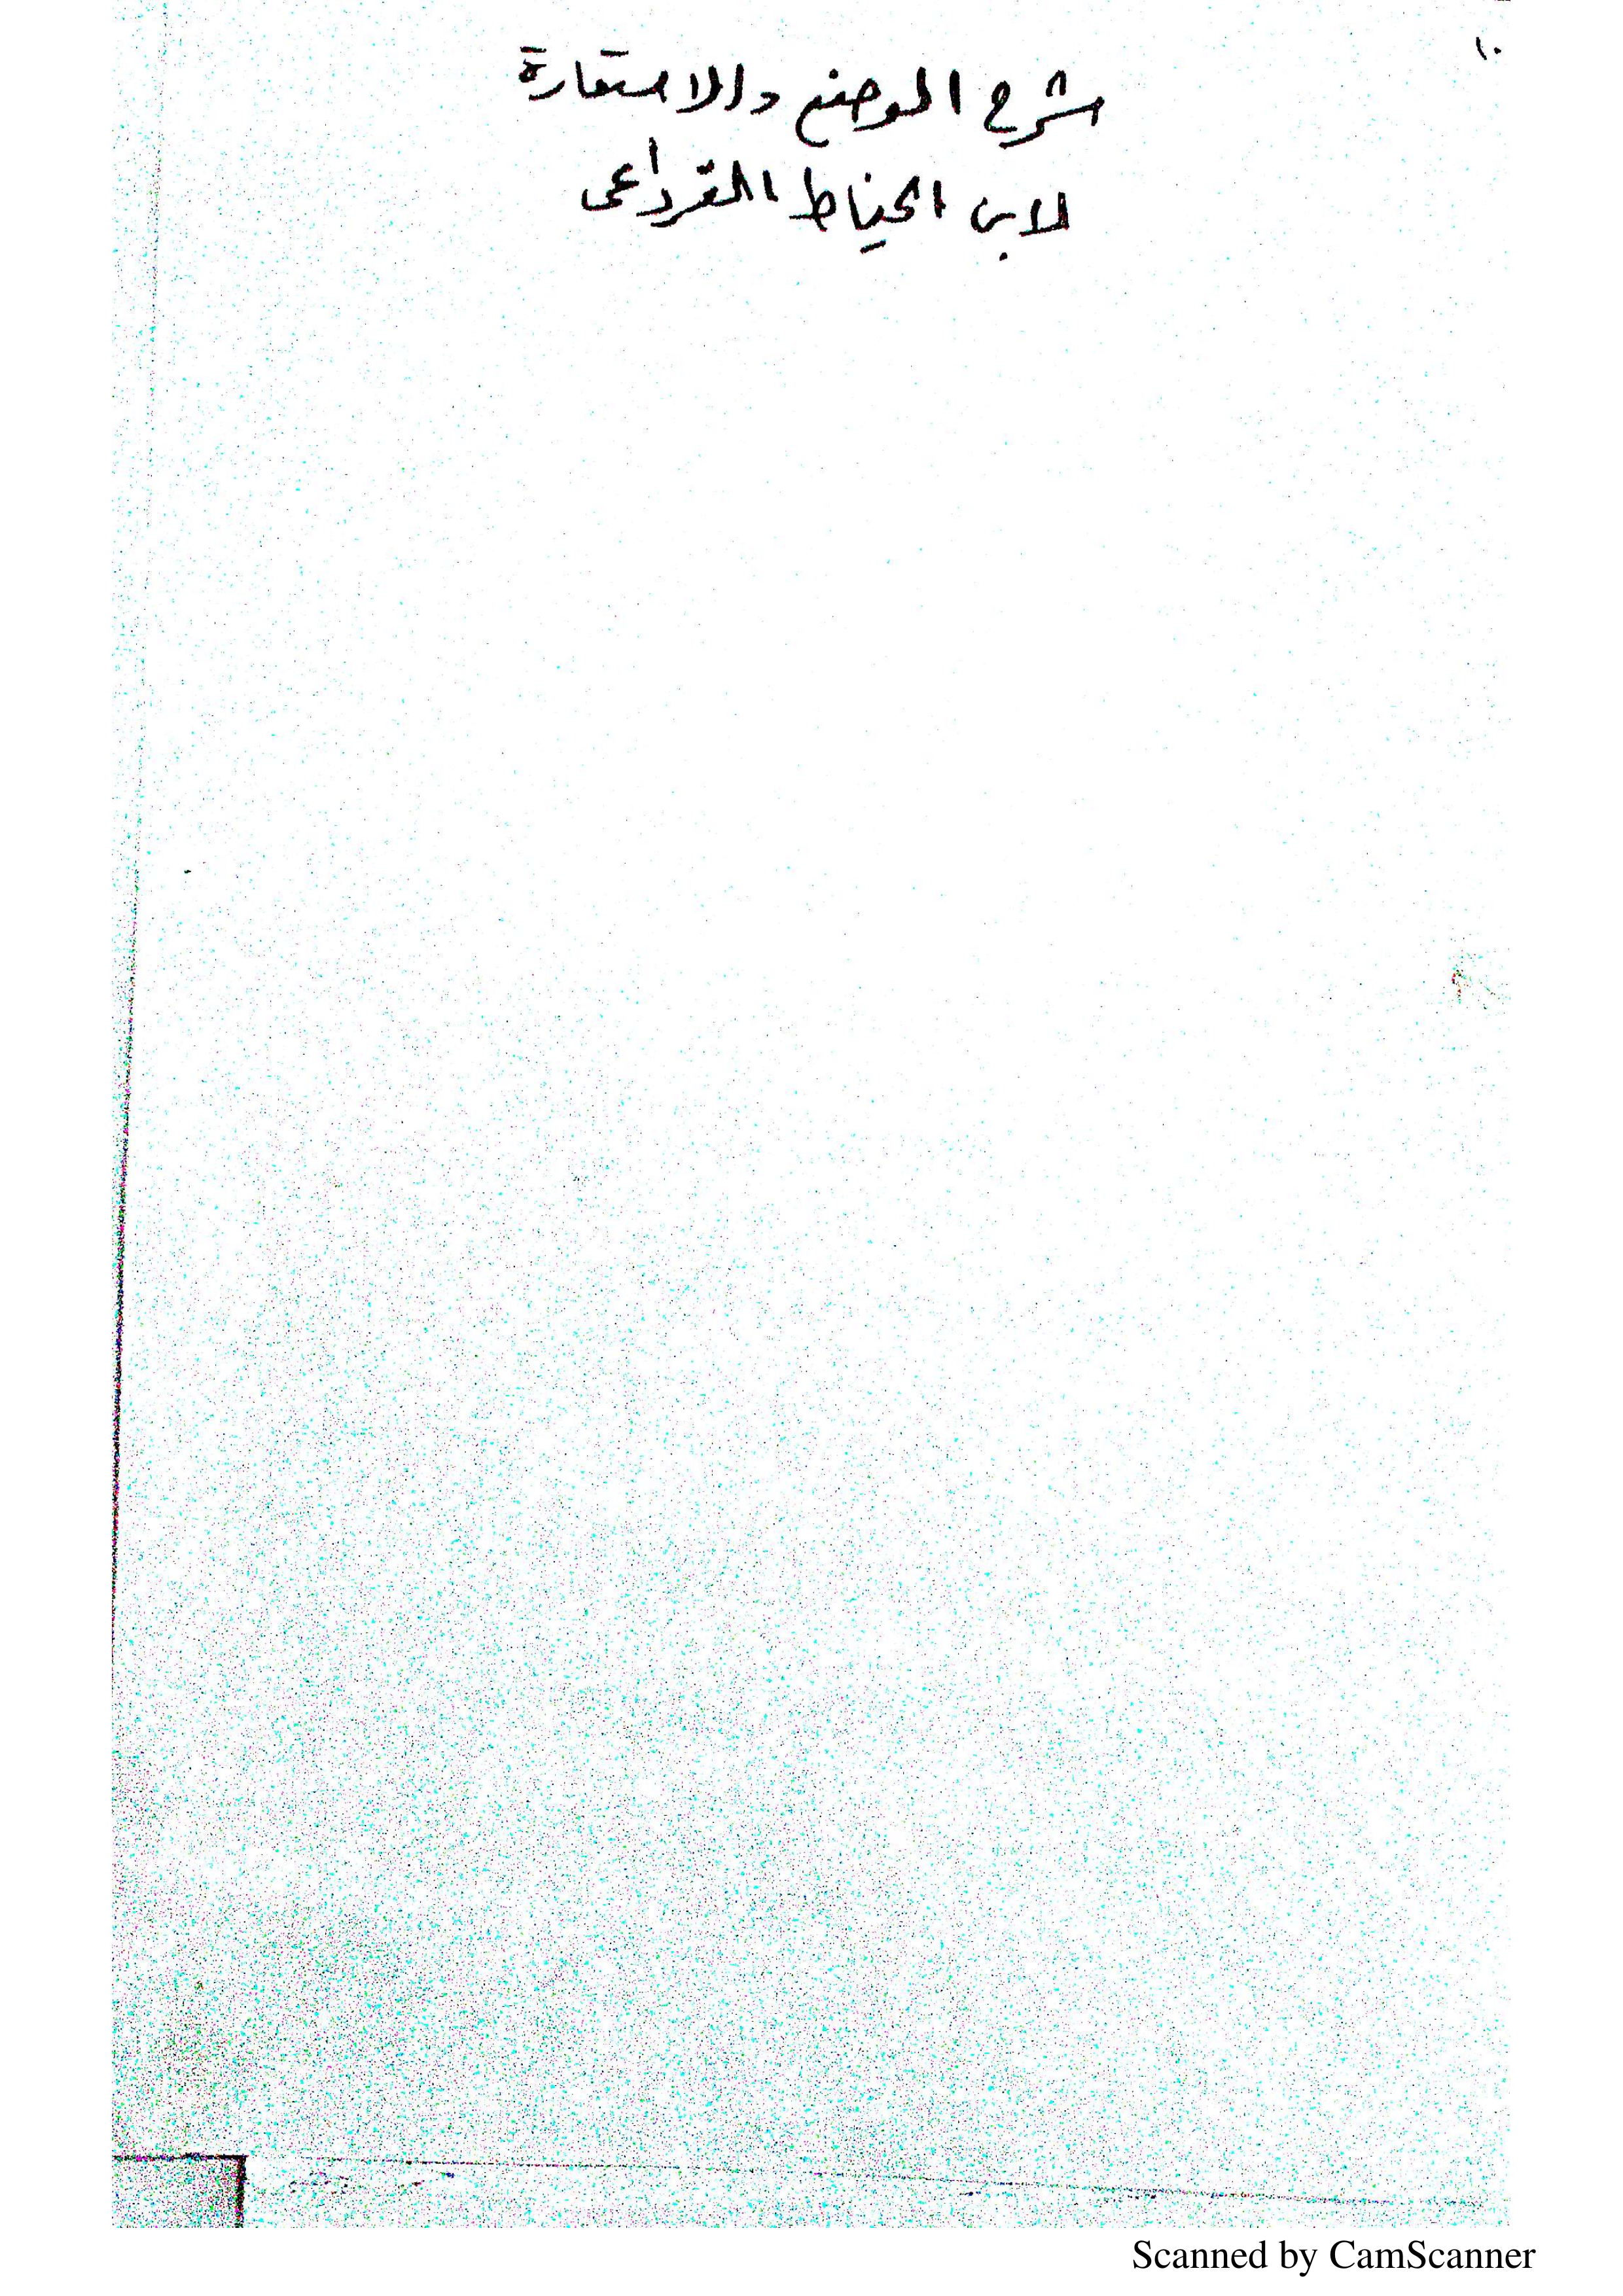 ١٠
شرح الوضع والاستعارة
لابن الخياط القرداغى
Scanned by CamScanner